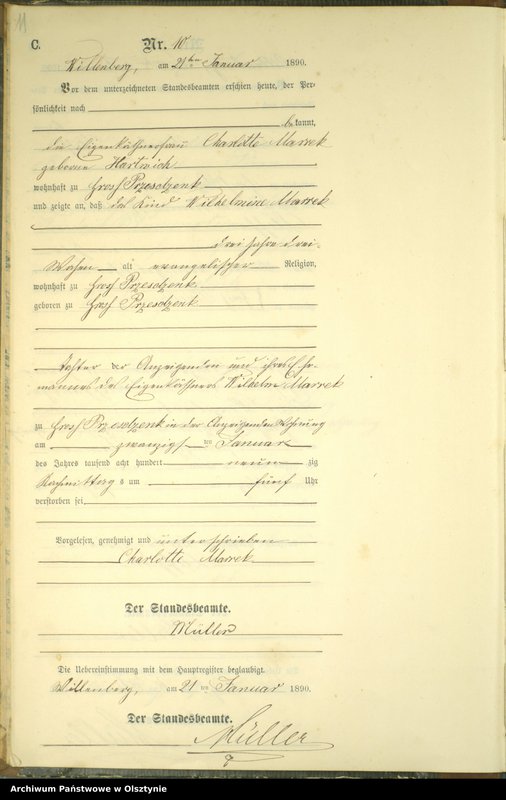 11
C.
Nr. 10
Willenberg, am 21ten Januar 1890.
Vor dem unterzeichneten Standesbeamten erschien heute, der Per-
sönlichkeit nach
bekannt,
die Eigenkäthnerfrau Charlotte Marrek
geborene Hartwich
wohnhaft zu Gross Przesdzenk
und zeigte an, daß das Kind Wilhelmine Marrek
drei Jahre drei
Wochen alt evangelischer Religion,
wohnhaft zu Gross Przesdzenk
geboren zu Gross Przesdzenk
Tochter der Anzeigenden und ihres Ehe-
mannes des Eigenkäthners Wilhelm Marrek
zu Gross Przesdzenk in der Anzeigenden Wohnung
am zwanzigsten Januar
des Jahres tausend acht hundert neunzig
Nachmittags um fünf Uhr
verstorben sei.
Vorgelesen, genehmigt und unterschrieben
Charlotte Marrek
Der Standesbeamte.
Müller
Die Uebereinstimmung mit dem Hauptregister beglaubigt.
Willenberg, am 21ten Januar 1890.
Der Standesbeamte.
Müller
Archiwum Państwowe w Olsztynie